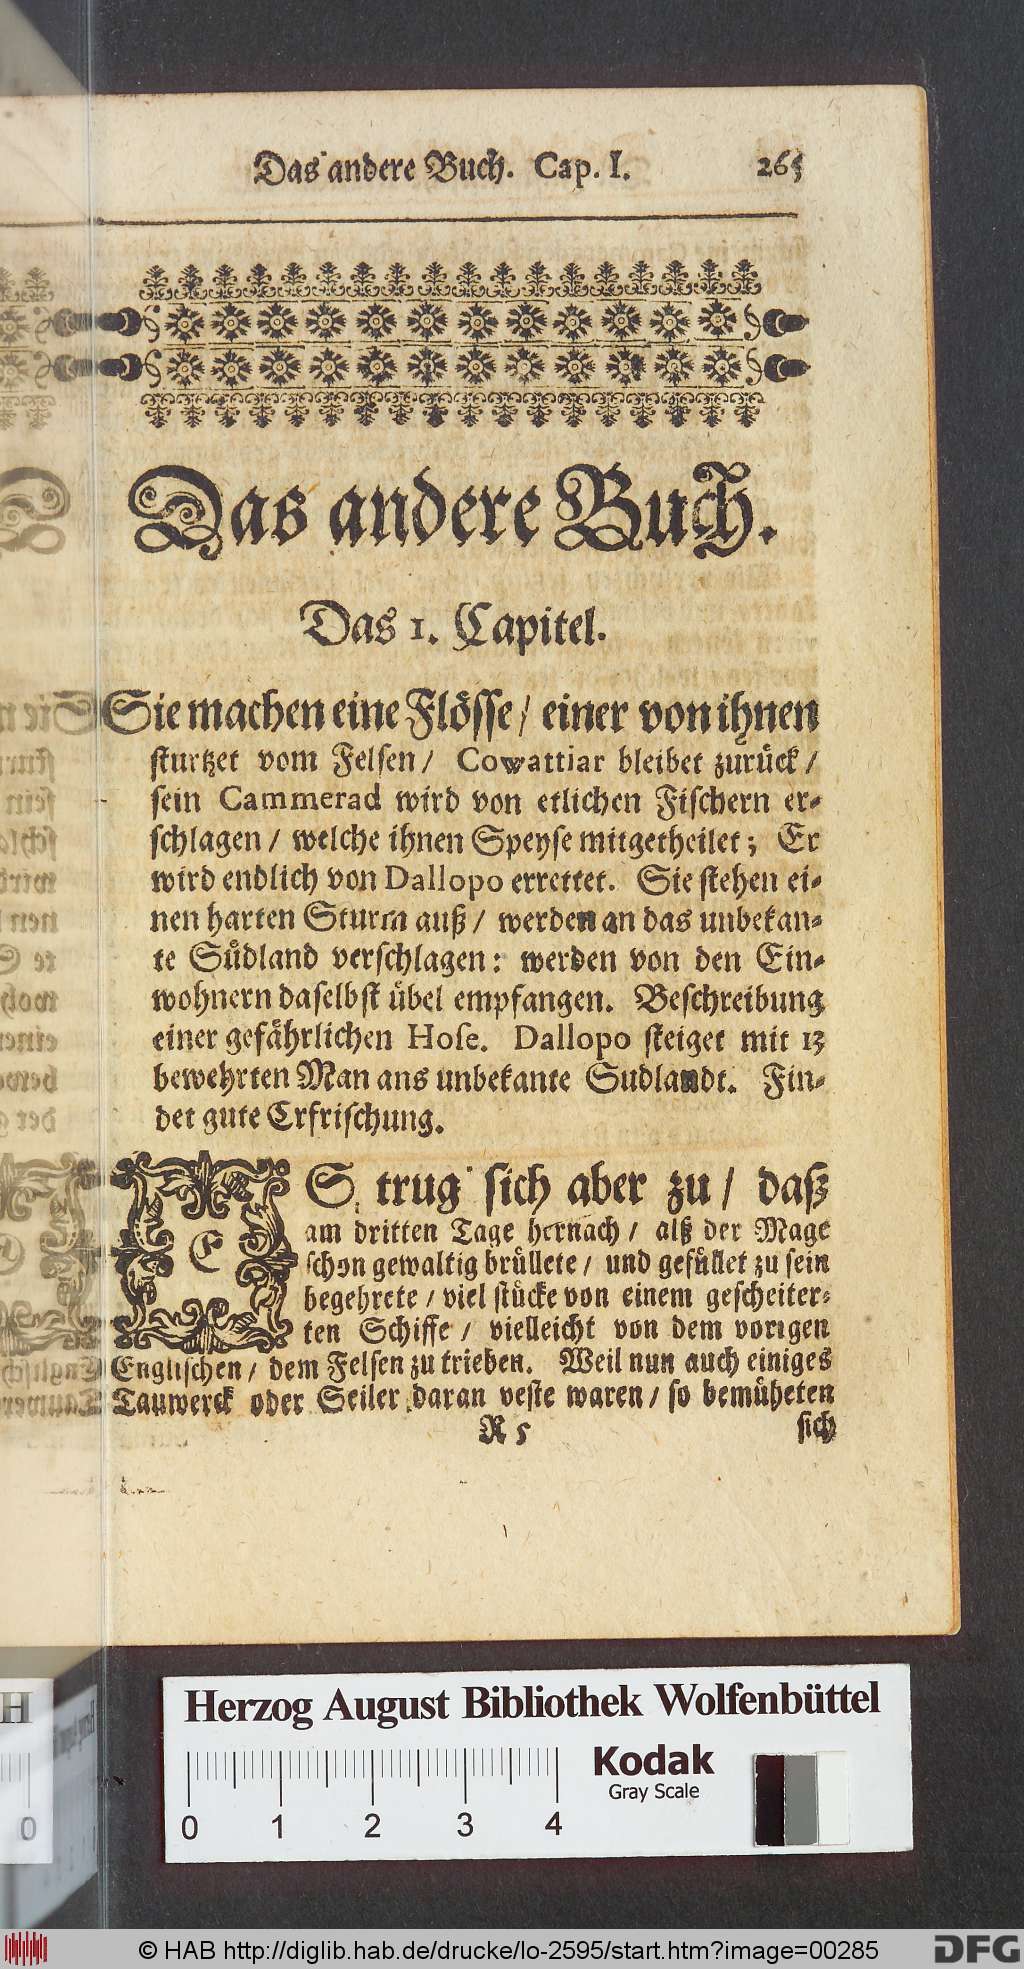 Das andere Buch. Cap. I. 265
Das andere Buch.
Das 1. Capitel.
Sie machen eine Flösse / einer von ihnen
sturtzet vom Felsen / Cowattiar bleibet zurück /
sein Cammerad wird von etlichen Fischern er-
schlagen / welche ihnen Speyse mitgetheilet; Er
wird endlich von Dallopo errettet. Sie stehen ei-
nen harten Sturm auß / werden an das unbekan-
te Südland verschlagen: werden von den Ein-
wohnern daselbst übel empfangen. Beschreibung
einer gefährlichen Hose. Dallopo steiget mit 13
bewehrten Man ans unbekante Sudlandt. Fin-
det gute Erfrischung.
ES trug sich aber zu / daß
am dritten Tage hernach / alß der Mage
schon gewaltig brüllete / und gefüllet zu sein
begehrete / viel stücke von einem gescheiter-
ten Schiffe / vielleicht von dem vorigen
Englischen / dem Felsen zu trieben. Weil nun auch einiges
Tauwerck oder Seiler daran veste waren / so bemüheten
R 5 sich
Herzog August Bibliothek Wolfenbüttel
Kodak
Gray Scale
0 1 2 3 4
H
0
© HAB http://diglib.hab.de/drucke/lo-2595/start.htm?image=00285
DFG